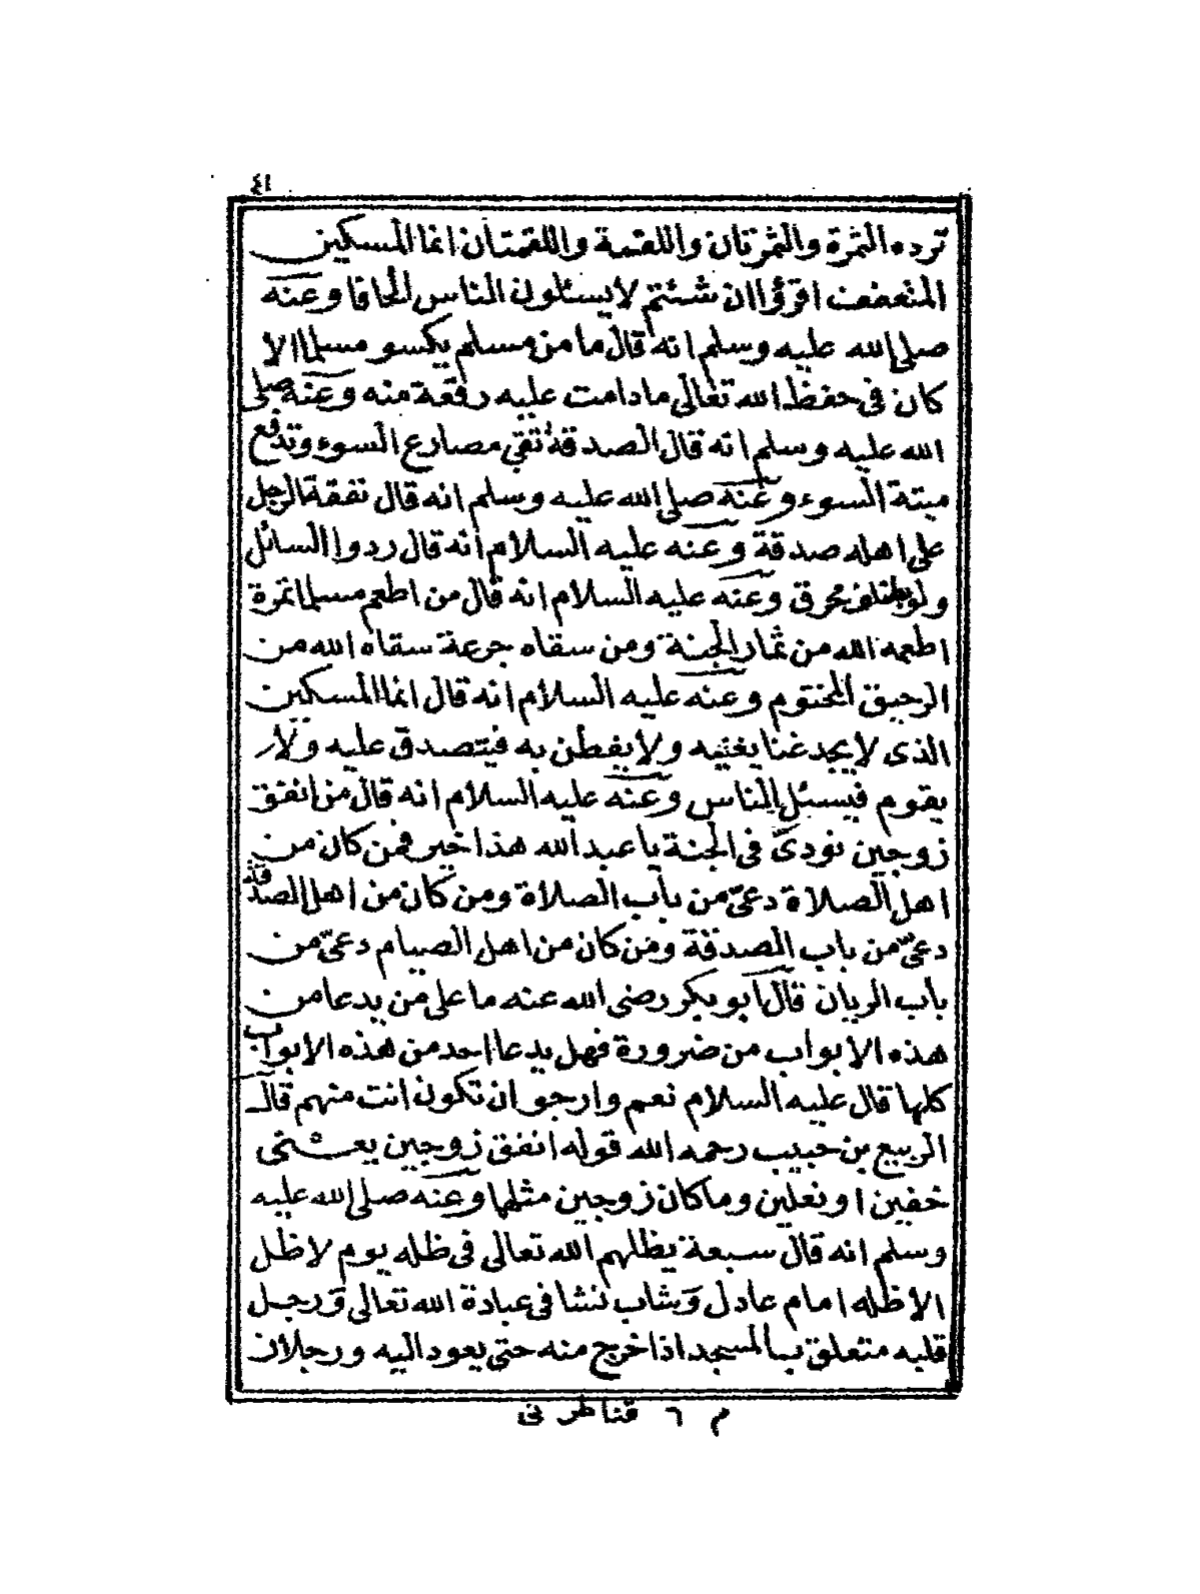 ٤١
ترده التمرة والتمرتان واللقمة واللقمتان انما المسكين
المتعفف اقرؤا ان شئتم لا يسئلون الناس الحافا وعنه
صلى الله عليه وسلم انه قال ما من مسلم يكسو مسلما الا
كان فى حفظ الله تعالى ما دامت عليه رقعة منه وعنه صلى
الله عليه وسلم انه قال الصدقة تقى مصارع السوء وتدفع
ميتة السوء وعنه صلى الله عليه وسلم انه قال نفقة الرجل
على اهله صدقة وعنه عليه السلام انه قال ردوا السائل
ولو بظلف محرق وعنه عليه السلام انه قال من اطعم مسلما تمرة
اطعمه الله من ثمار الجنة ومن سقاه جرعة سقاه الله من
الرحيق المختوم وعنه عليه السلام انه قال انما المسكين
الذى لا يجد غنا يغنيه ولا يفطن به فيتصدق عليه ولا
يقوم فيسئل الناس وعنه عليه السلام انه قال من انفق
زوجين نودى فى الجنة يا عبد الله هذا خير فمن كان من
اهل الصلاة دعى من باب الصلاة ومن كان من اهل الصدقة
دعى من باب الصدقة ومن كان من اهل الصيام دعى من
باب الريان قال ابو بكر رضى الله عنه ما على من يدعا من
هذه الابواب من ضرورة فهل يدعا احد من هذه الابواب
كلها قال عليه السلام نعم وارجو ان تكون انت منهم قال
الربيع بن حبيب رحمه الله قوله انفق زوجين يعنى
خفين او نعلين وما كان زوجين مثلها وعنه صلى الله عليه
وسلم انه قال سبعة يظلهم الله تعالى فى ظله يوم لا ظل
الا ظله امام عادل وشاب نشا فى عبادة الله تعالى ورجل
قلبه متعلق بالمسجد اذا خرج منه حتى يعود اليه ورجلان
م ٦ قناطر نى